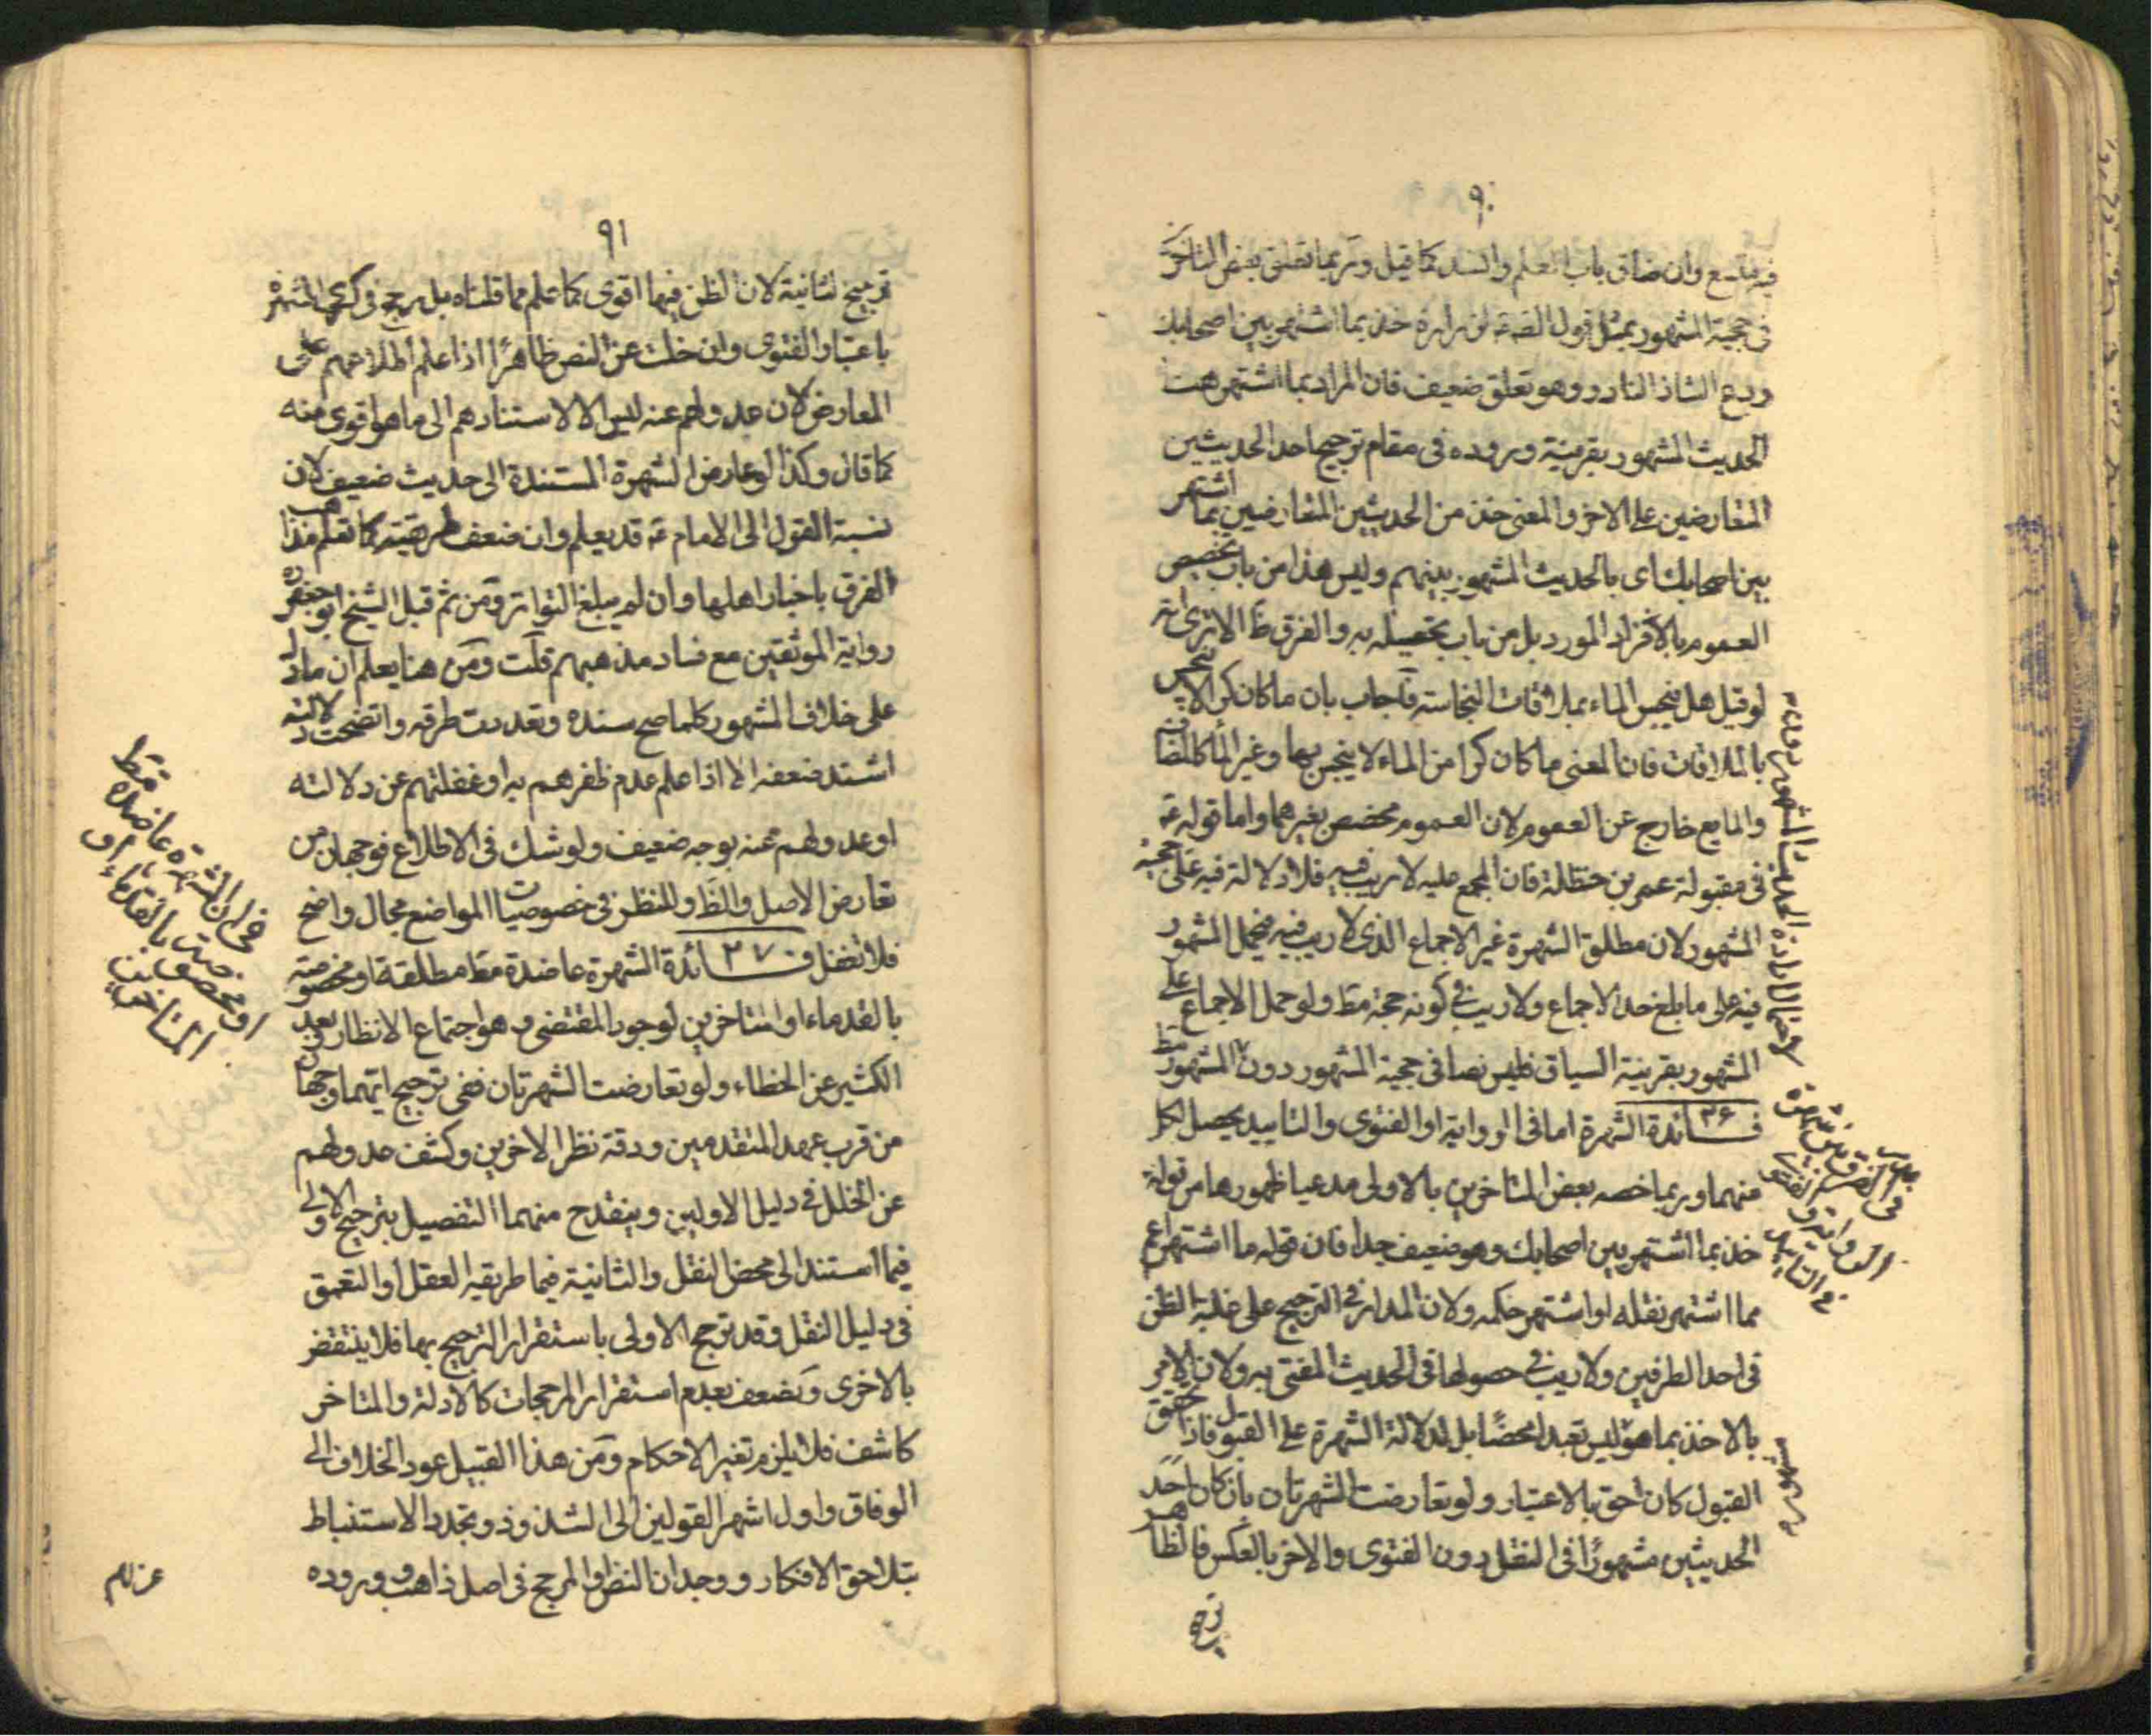 ٩٠
فيه متسع وان ضاق باب العلم والسند كما قيل وربما تعلق بعض المتاخر
فى حجية المشهور بمثل قول الصه لزرارة خذ بما اشتهر بين اصحابك
ودع الشاذ النادر وهو تعلق ضعيف فان المراد بما اشتهر هت
الحديث المشهور بقرينة وروده فى مقام ترجيح احد الحديثين
المتعارضين على الاخر والمعنى خذ من الحديثين المتعارضين بما اشتهر
بين اصحابك اى بالحديث المشهور بينهم وليس هذا من باب تخصيص
العموم بالافراد المورد بل من باب تحصيله به والفرق ظ الا ترى انه
لو قيل هل ينجس الماء بملاقات النجاسة فاجاب بان ما كان كرا لا ينجس
بالملاقات فان المعنى ما كان كرا من الماء لا ينجس بها وغير الماء كالمضاف
والمايع خارج عن العموم لان العموم مخصص بغيرهما واما قوله ع
فى مقبولة عمر بن حنظلة فان المجمع عليه لا ريب فيه فلا دلالة فيه على حجية
المشهور لان مطلق الشهرة غير الاجماع الذى لا ريب فيه فيحمل المشهور
فيه على ما بلغ حد الاجماع ولا ريب فى كونه حجة مط ولو حمل الاجماع على
المشهور بقرينة السياق فليس نصا فى حجية المشهور دون المشهور مط
٣۶ فــائدة الشهرة اما فى الرواية او الفتوى والتاييد يحصل بكل
منهما وربما خصه بعض المتاخرين بالاولى مدعيا ظهورها من قوله
خذ بما اشتهر بين اصحابك وهو ضعيف جدا فان قوله ما اشتهر اعم
مما اشتهر نقله او اشتهر حكمه ولان المدار فى الترجيح على غلبة الظن
فى احد الطرفين ولا ريب فى حصولها فى الحديث المفتى به ولان الامر
بالاخذ بما هو ليس تعبدا محضًا بل لدلالة الشهرة على القبول فاذا تحقق
القبول كان احق بالاعتبار ولو تعارضت الشهرتان بان كان احد
الحديثين مشهورًا فى النقل دون الفتوى والاخر بالعكس فالظاهر
ترجيح
٩١
ترجيح الثانية لان الظن فيها اقوى كما علم مما قلناه بل يرجح ذكرى الشهرة
باعتبار الفتوى وان خلت عن النص ظاهرًا اذا علم اطلاعهم على
المعارض لان عدولهم عنه ليس الا لاستنادهم الى ما هو اقوى منه
كما قال وكذا لو عارض الشهرة المستندة الى حديث ضعيف لان
نسبة القول الى الامام ع قد يعلم وان ضعف طريقته كما تعلم مذاهب
الفرق باخبار اهلها وان لم يبلغ التواتر ومن ثم قبل الشيخ ابو جعفر ره
رواية الموثقين مع فساد مذهبهم قلت ومن هنا يعلم ان ما دل
على خلاف المشهور كلما صح سنده وتعددت طرقه واتضحت دلالته
اشتد ضعفه الا اذا علم عدم ظفرهم به او غفلتهم عن دلالته
او عدولهم عنه بوجه ضعيف ولو شك فى الاطلاع فوجهان من
تعارض الاصل والظ وللنظر فى خصوصيات المواضع مجال واضح
فلا تغفل ٣٧ فــائدة الشهرة عاضدة مط مطلقة او مخصوصة
بالقدماء او المتاخرين لوجود المقتضى وهو اجتماع الانظار وبعد
الكثير عن الخطاء ولو تعارضت الشهرتان ففى ترجيح ايتهما وجهان
من قرب عهد المتقدمين ودقة نظر الاخرين وكشف عدولهم
عن الخلل فى دليل الاولين وينقدح منهما التفصيل بترجيح الاولى
فيما استند الى محض النقل والثانية فيما طريقه العقل او التعمق
فى دليل النقل وقد ترجح الاولى باستقرار الترجيح بها فلا ينتقض
بالاخرى ويضعف بعدم استقرار المرجحات كالادلة والمتاخر
كاشف فلا يلزم تغير الاحكام ومن هذا القبيل عود الخلاف الى
الوفاق واول اشهر القولين الى الشذوذ وتجدد الاستنباط
بتلاحق الافكار ووجدان النص او المرجح فى اصل ذاهب ووروده
فى ان الشهرة عاضدة مط
او مخصوصة بالقدماء او
المتاخرين